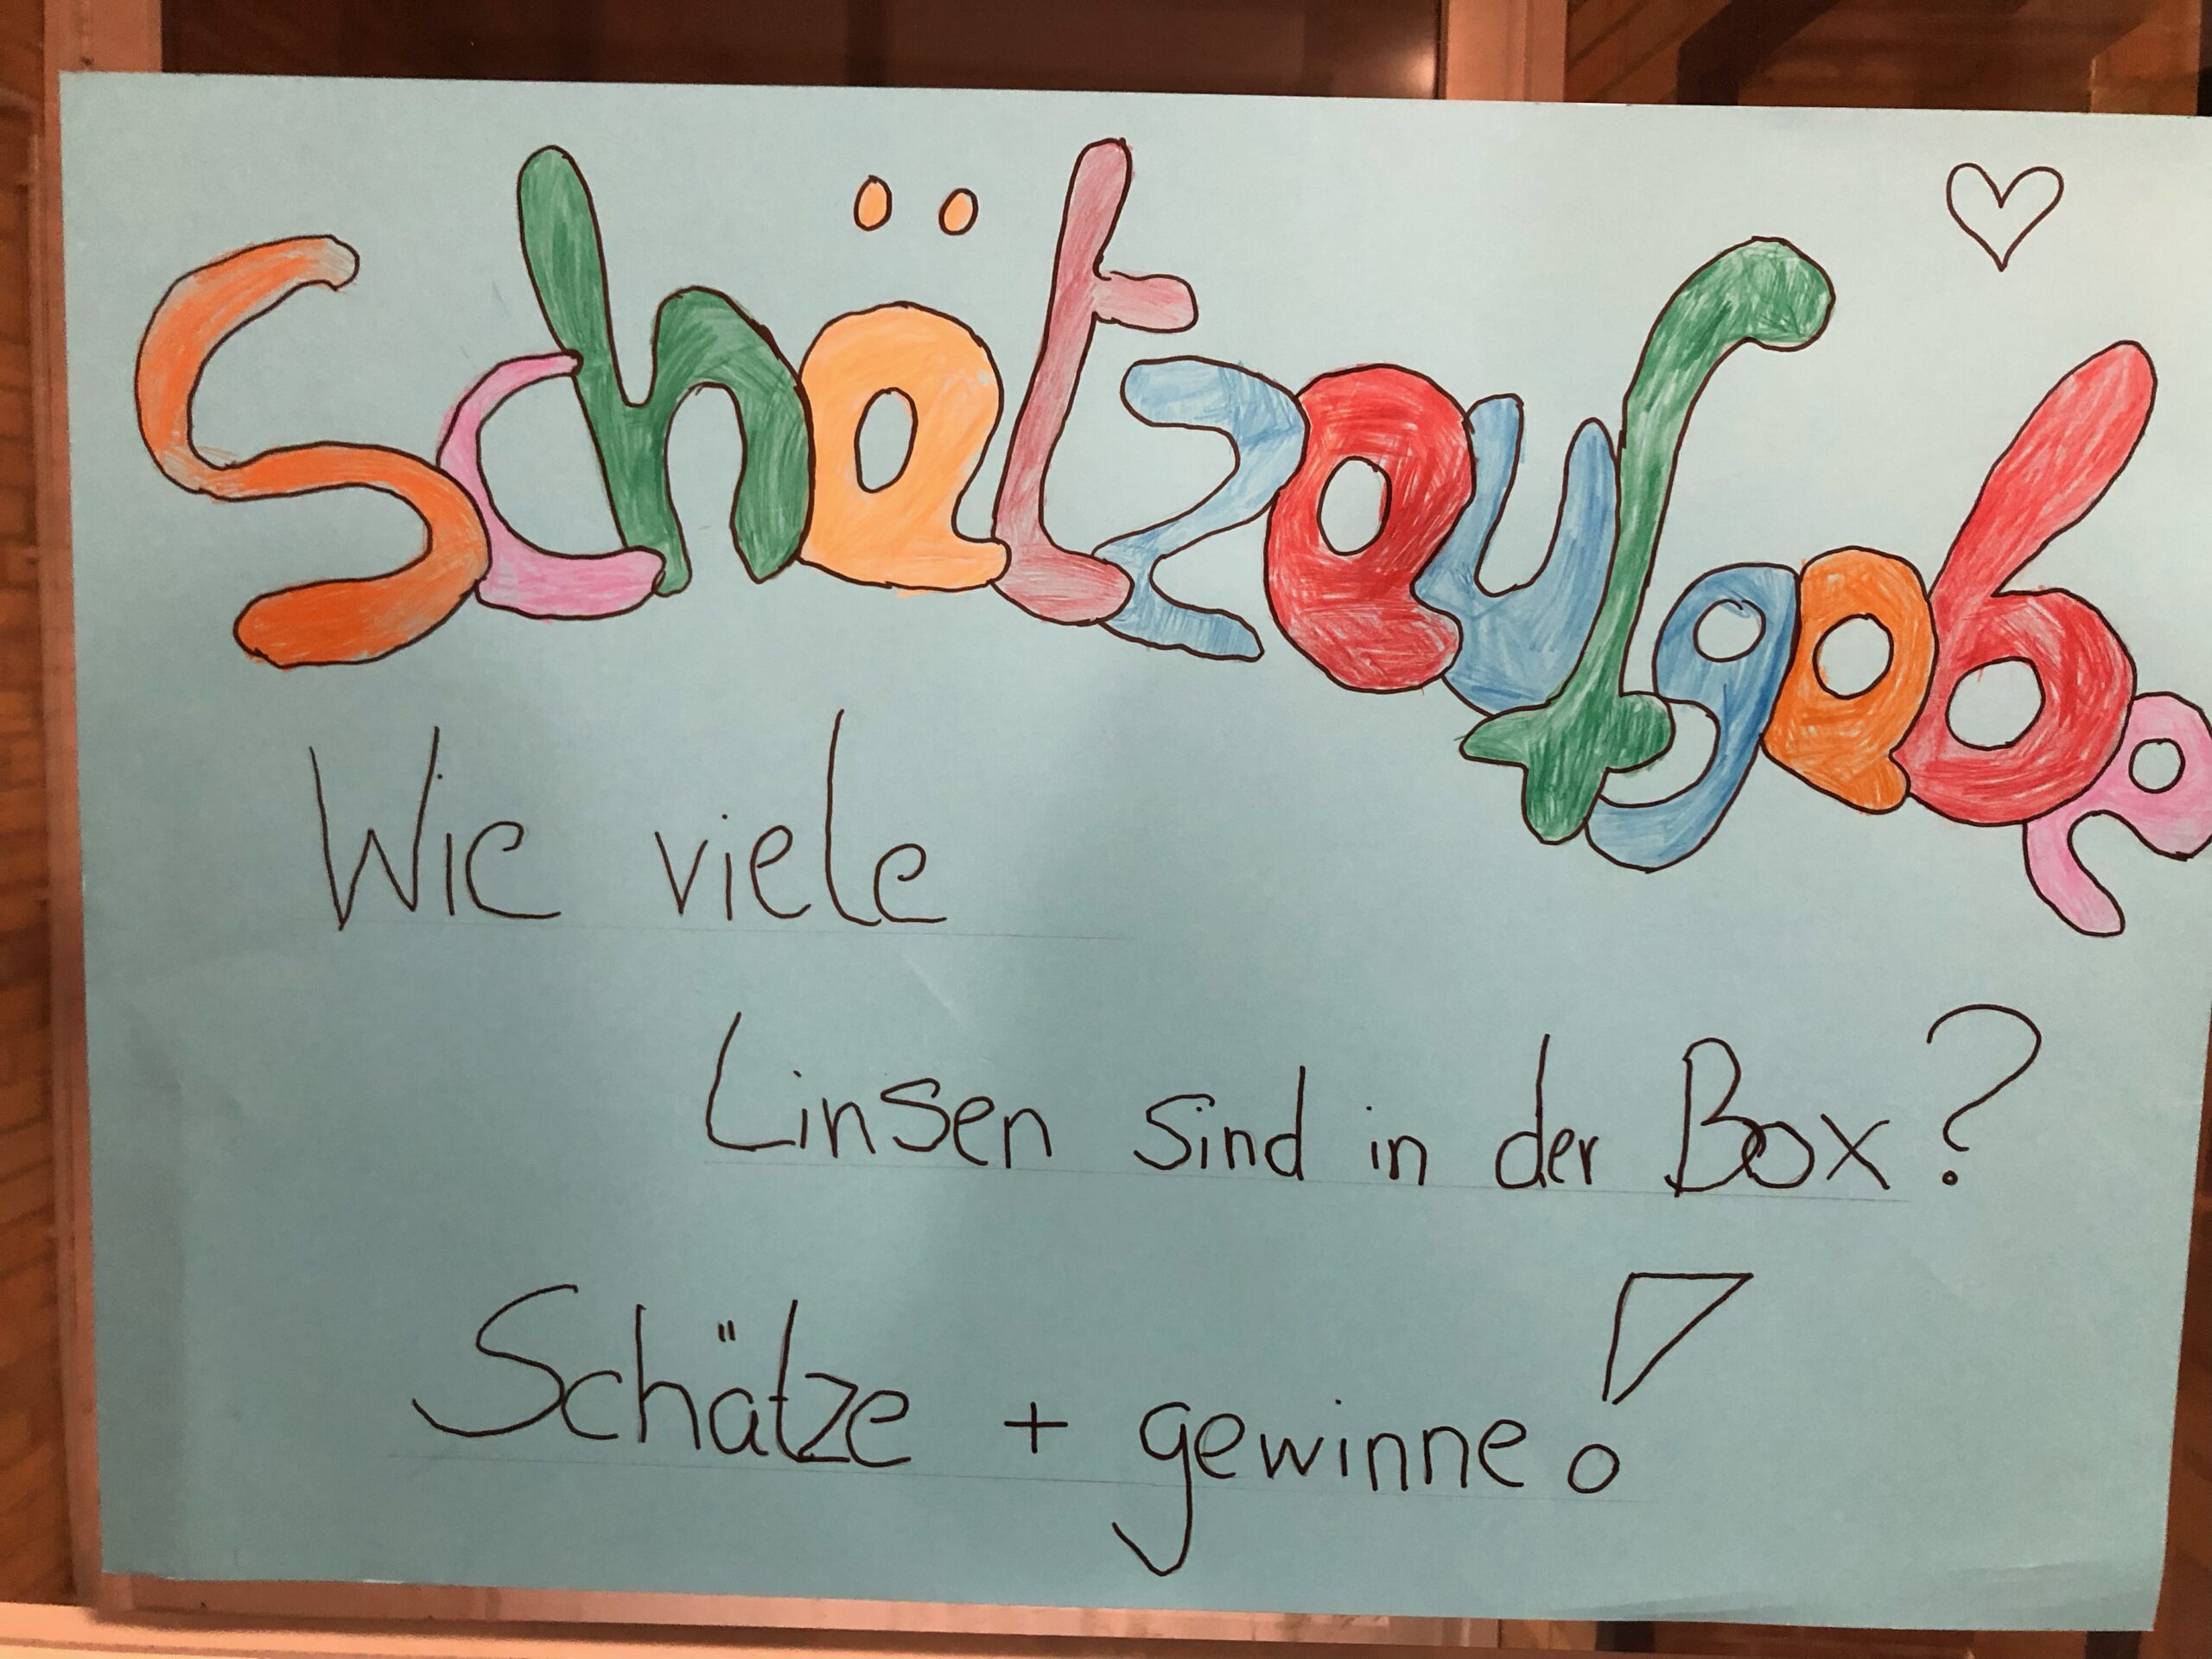 Schätzaufgabe
Wie viele
Linsen sind in der Box?
Schätze + gewinne!